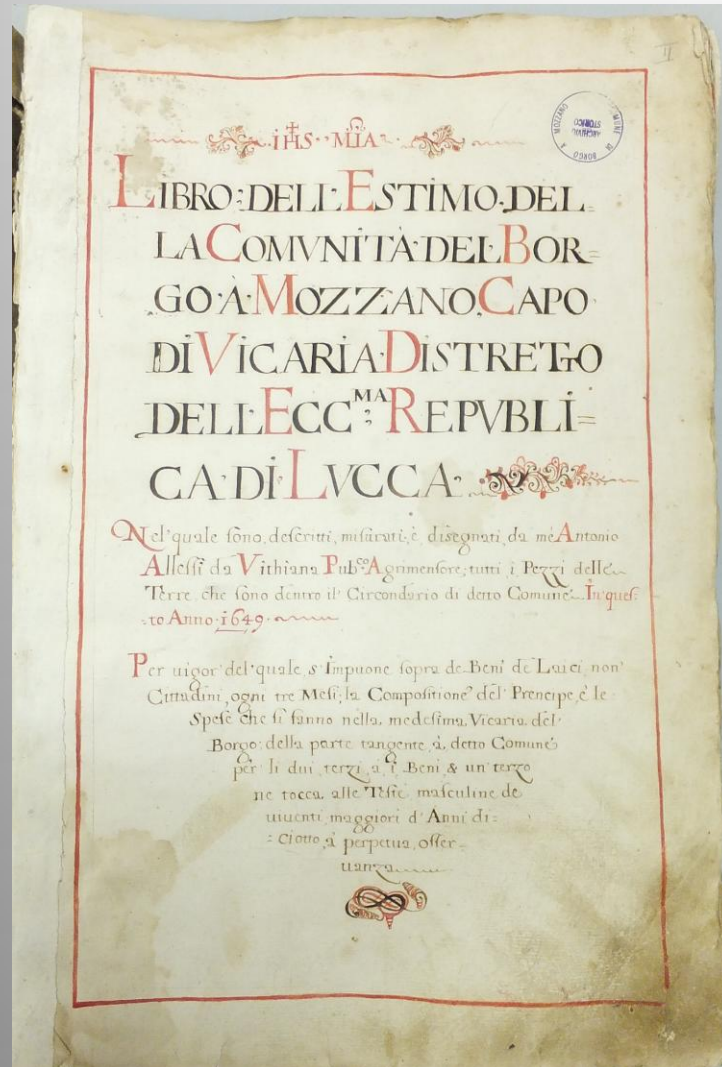 II
COMUNE DI BORGO A MOZZANO
ARCHIVIO
STORICO
·IHS··MIA·
LIBRO:DELL'ESTIMO·DEL=
LA COMVNITÀ·DEL·BOR=
GO·À·MOZZANO,CAPO
DI VICARIA·DISTRETTO
DELL'ECC.MA REPVBLI=
CA·DI·LVCCA·
Nel'quale sono, descritti, misurati, è disegnati, da me Antonio
Allessi da Vithiana Pub.co Agrimensore; tutti i Pezzi delle
Terre, che sono dentro il Circondario di detto Comune. In ques=
=to Anno·1649·
Per uigor del'quale s'Impuone sopra de Beni de Laici non
Cittadini, ogni tre Mesi, la Compositione del Prencipe, è le
Spese che si fanno nella, medesima, Vicaria del
Borgo: della parte tangente, à, detto Comune
per li dui, terzi, a, i Beni, & un terzo
ne tocca alle Teste masculine de
uiuenti, maggiori d'Anni di=
=ciotto, à perpetua, osser=
uanza